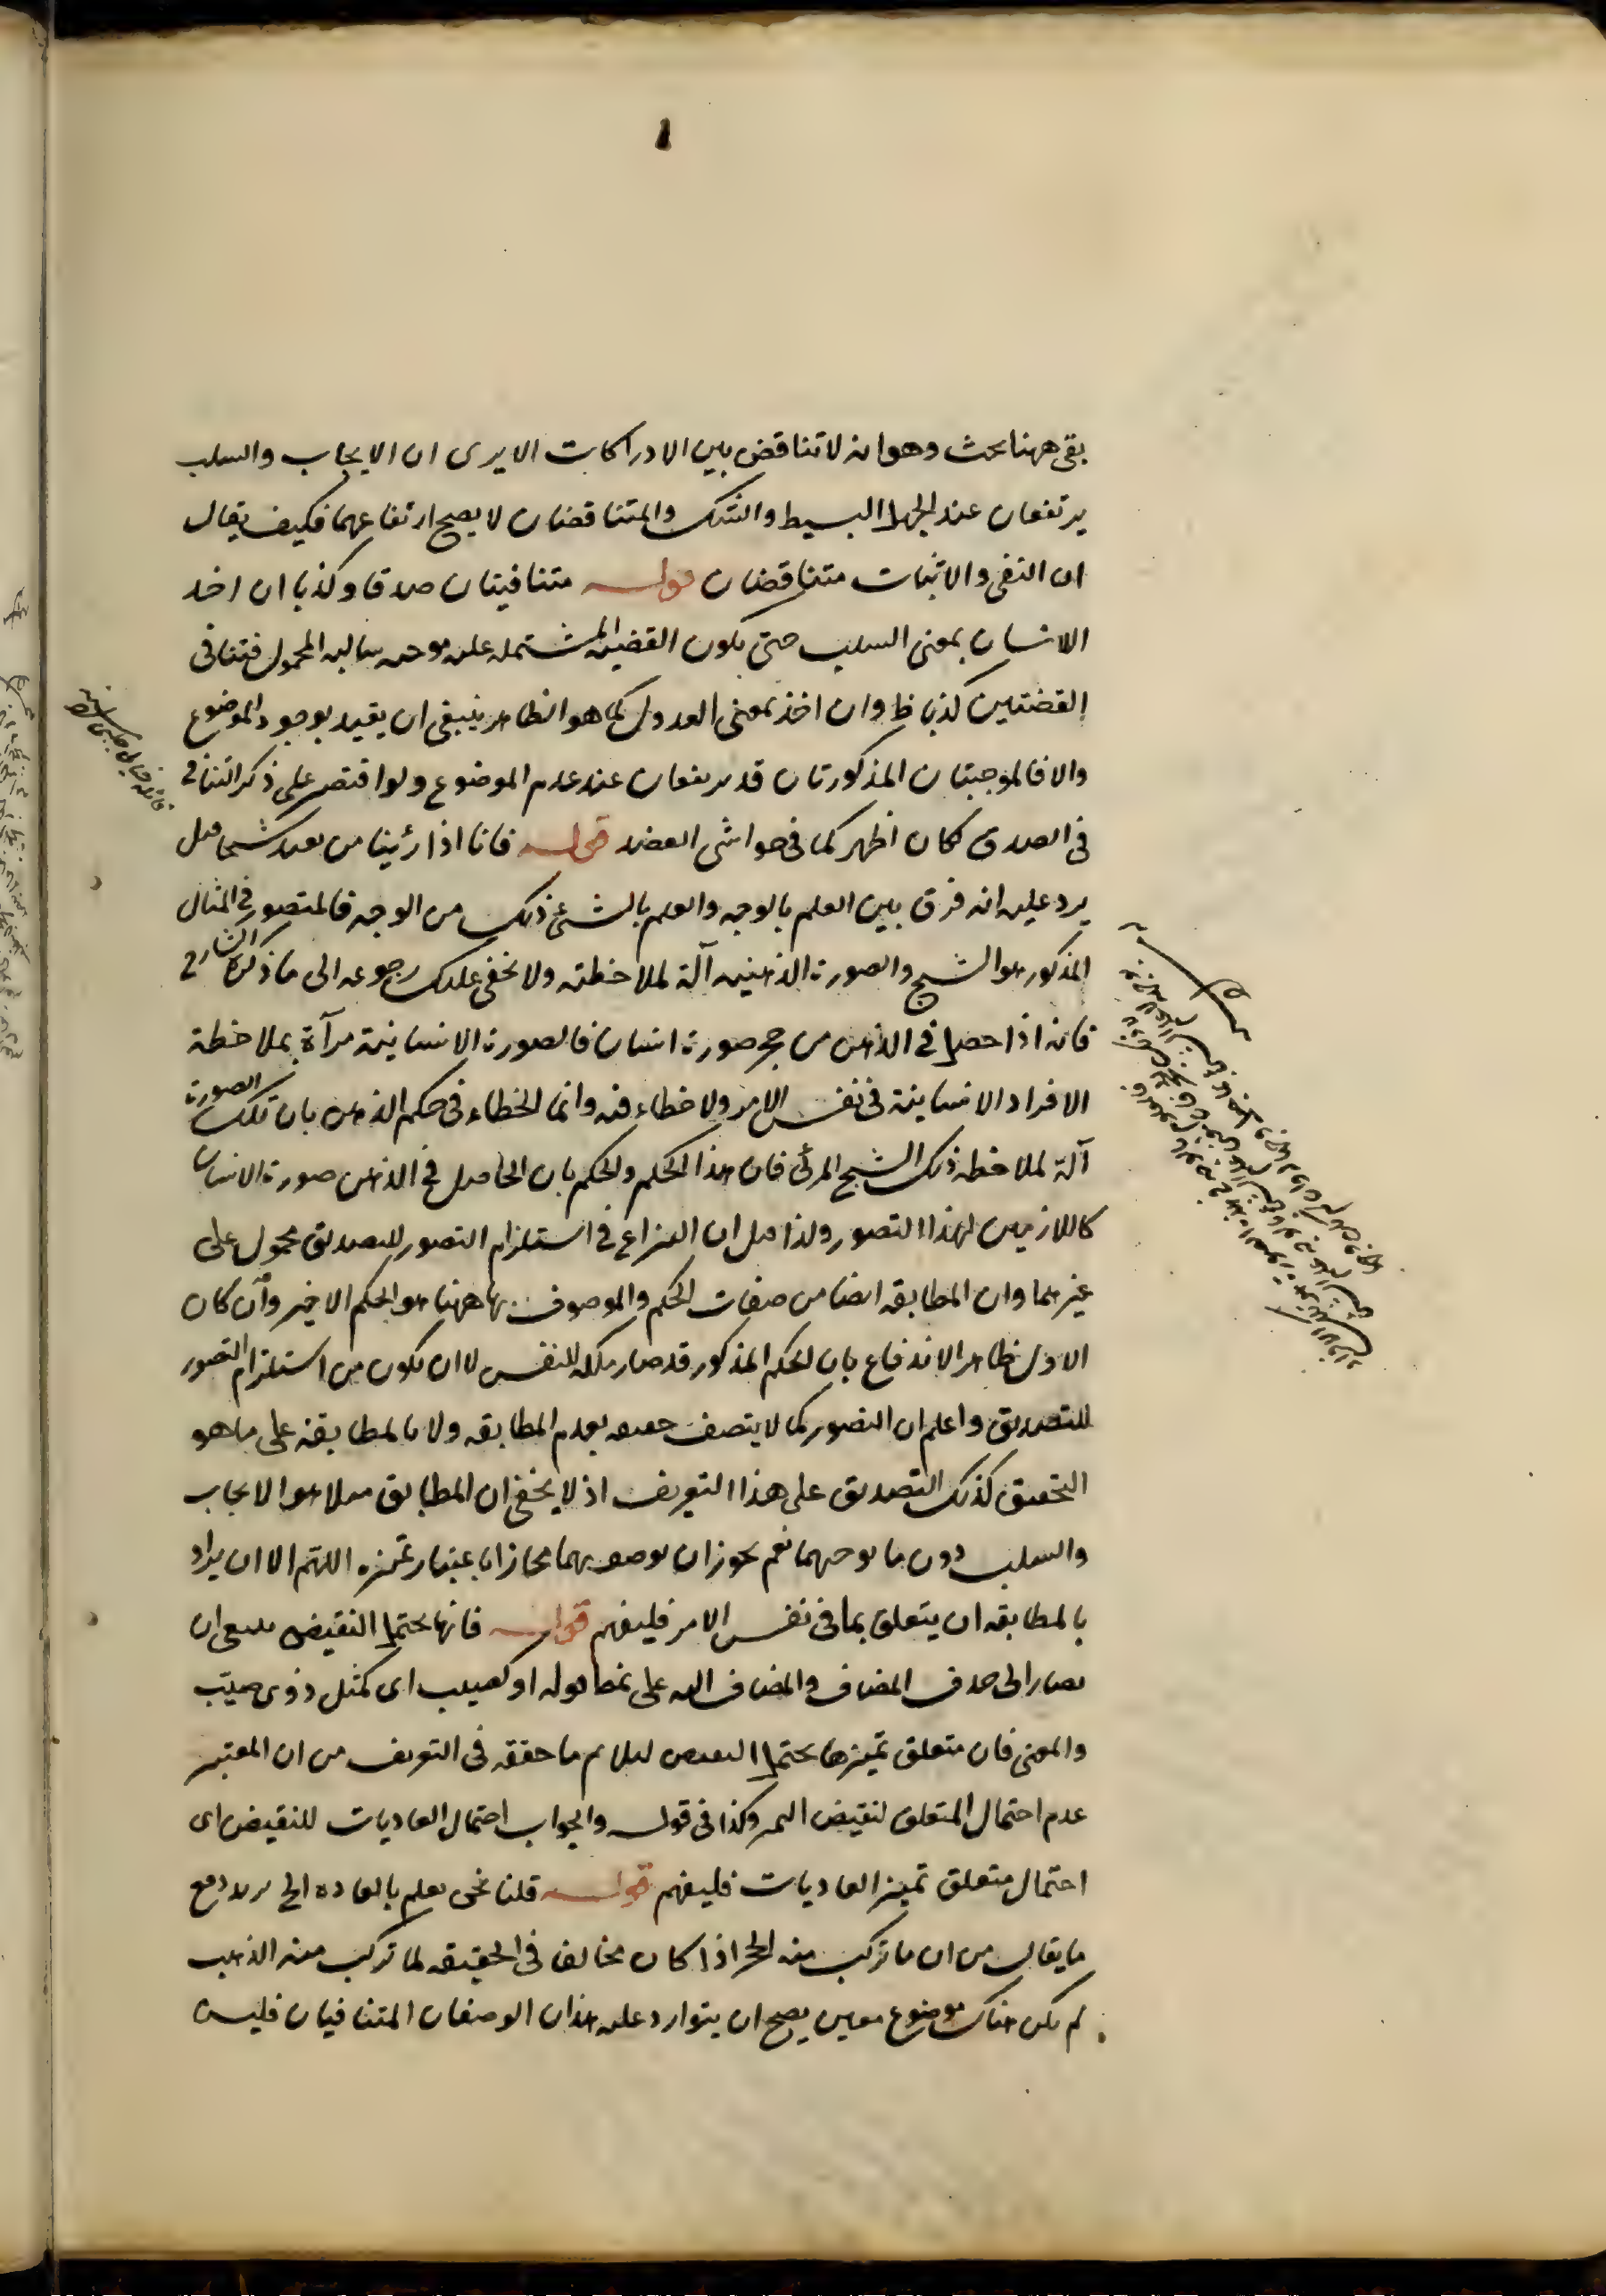 ١
بقى ههنا بحث وهو انه لا تناقض بين الادراكات الا يرى ان الايجاب والسلب
يرتفعان عند الجهل البسيط والشك والمتناقضان لا يصح ارتفاعهما فكيف يقال
ان النفى والاثبات متناقضان قوله متنافيتان صدقا وكذبا ان اخذ
الانسان بمعنى السلب حتى يكون القضية المشتملة عليه موجبه سالبه المحمول فتنافى
القضيتين كذبا ظ وان اخذ بمعنى العدول كما هو الظاهر ينبغى ان يقيد بوجود الموضوع
والا فالموجبتان المذكورتان قد يرتفعان عند عدم الموضوع ولو اقتصر على ذكر التنافى
فى الصدق لكان اظهر كما فى حواشى العضد قوله فانا اذا رئينا من بعيد شبحا قيل
يرد عليه انه فرق بين العلم بالوجه والعلم بالشىء من ذلك الوجه فالمتصور فى المثال
المذكور هو الشبح والصورة الذهنيه آلة لملاحظته ولا يخفى عليك رجوعه الى ما ذكره الشارح
فانه اذا حصل فى الذهن من حجر صورة انسان فالصورة الانسانية مرآة لملاحظة
الافراد الانسانية فى نفس الامر ولا خطاء فيه وانما الخطاء فى حكم الذهن بان تلك الصورة
آلة لملاحظه ذلك الشبح المرئى فان هذا الحكم والحكم بان الحاصل فى الذهن صورة الانسان
كاللازمين لهذا التصور ولذا قيل ان النزاع فى استلزام التصور للتصديق محمول على
غيرهما وان المطابقه ايضا من صفات الحكم والموصوف بها ههنا هو الحكم الاخير وان كان
الاول ظاهر الاندفاع بان الحكم المذكور قد صار ملكه للنفس لا ان يكون من استلزام التصور
للتصديق واعلم ان التصور كما لا يتصف حقيقه بعدم المطابقه ولا بالمطابقة على ما هو
التحقيق كذلك التصديق على هذا التعريف اذ لا يخفى ان المطابق مثلا هو الايجاب
والسلب دون ما يوجبهما نعم يجوز ان يوصف بهما مجازا باعتبار تميزه اللهم الا ان يراد
بالمطابقه ان يتعلق بما فى نفس الامر فليفهم قوله فانها يحتمل النقيض ينبغى ان
يصار الى حذف المضاف والمضاف اليه على نمط قوله او كصيب اى كمثل ذوى صيّب
والمعنى فان متعلق تميزها يحتمل النقيض ليلايم ما حققه فى التعريف من ان المعتبر
عدم احتمال المتعلق لنقيض التميز وكذا فى قوله والجواب احتمال العاديات للنقيض اى
احتمال متعلق تميز العاديات فليفهم قوله قلنا نحن نعلم بالعاده الخ يريد دفع
ما يقال من ان ما تركب منه الحجر اذا كان مخالفا فى الحقيقه لما تركب منه الذهب
لم يكن هناك موضوع معين يصح ان يتوارد عليه هذان الوصفان المتنافيان فليس